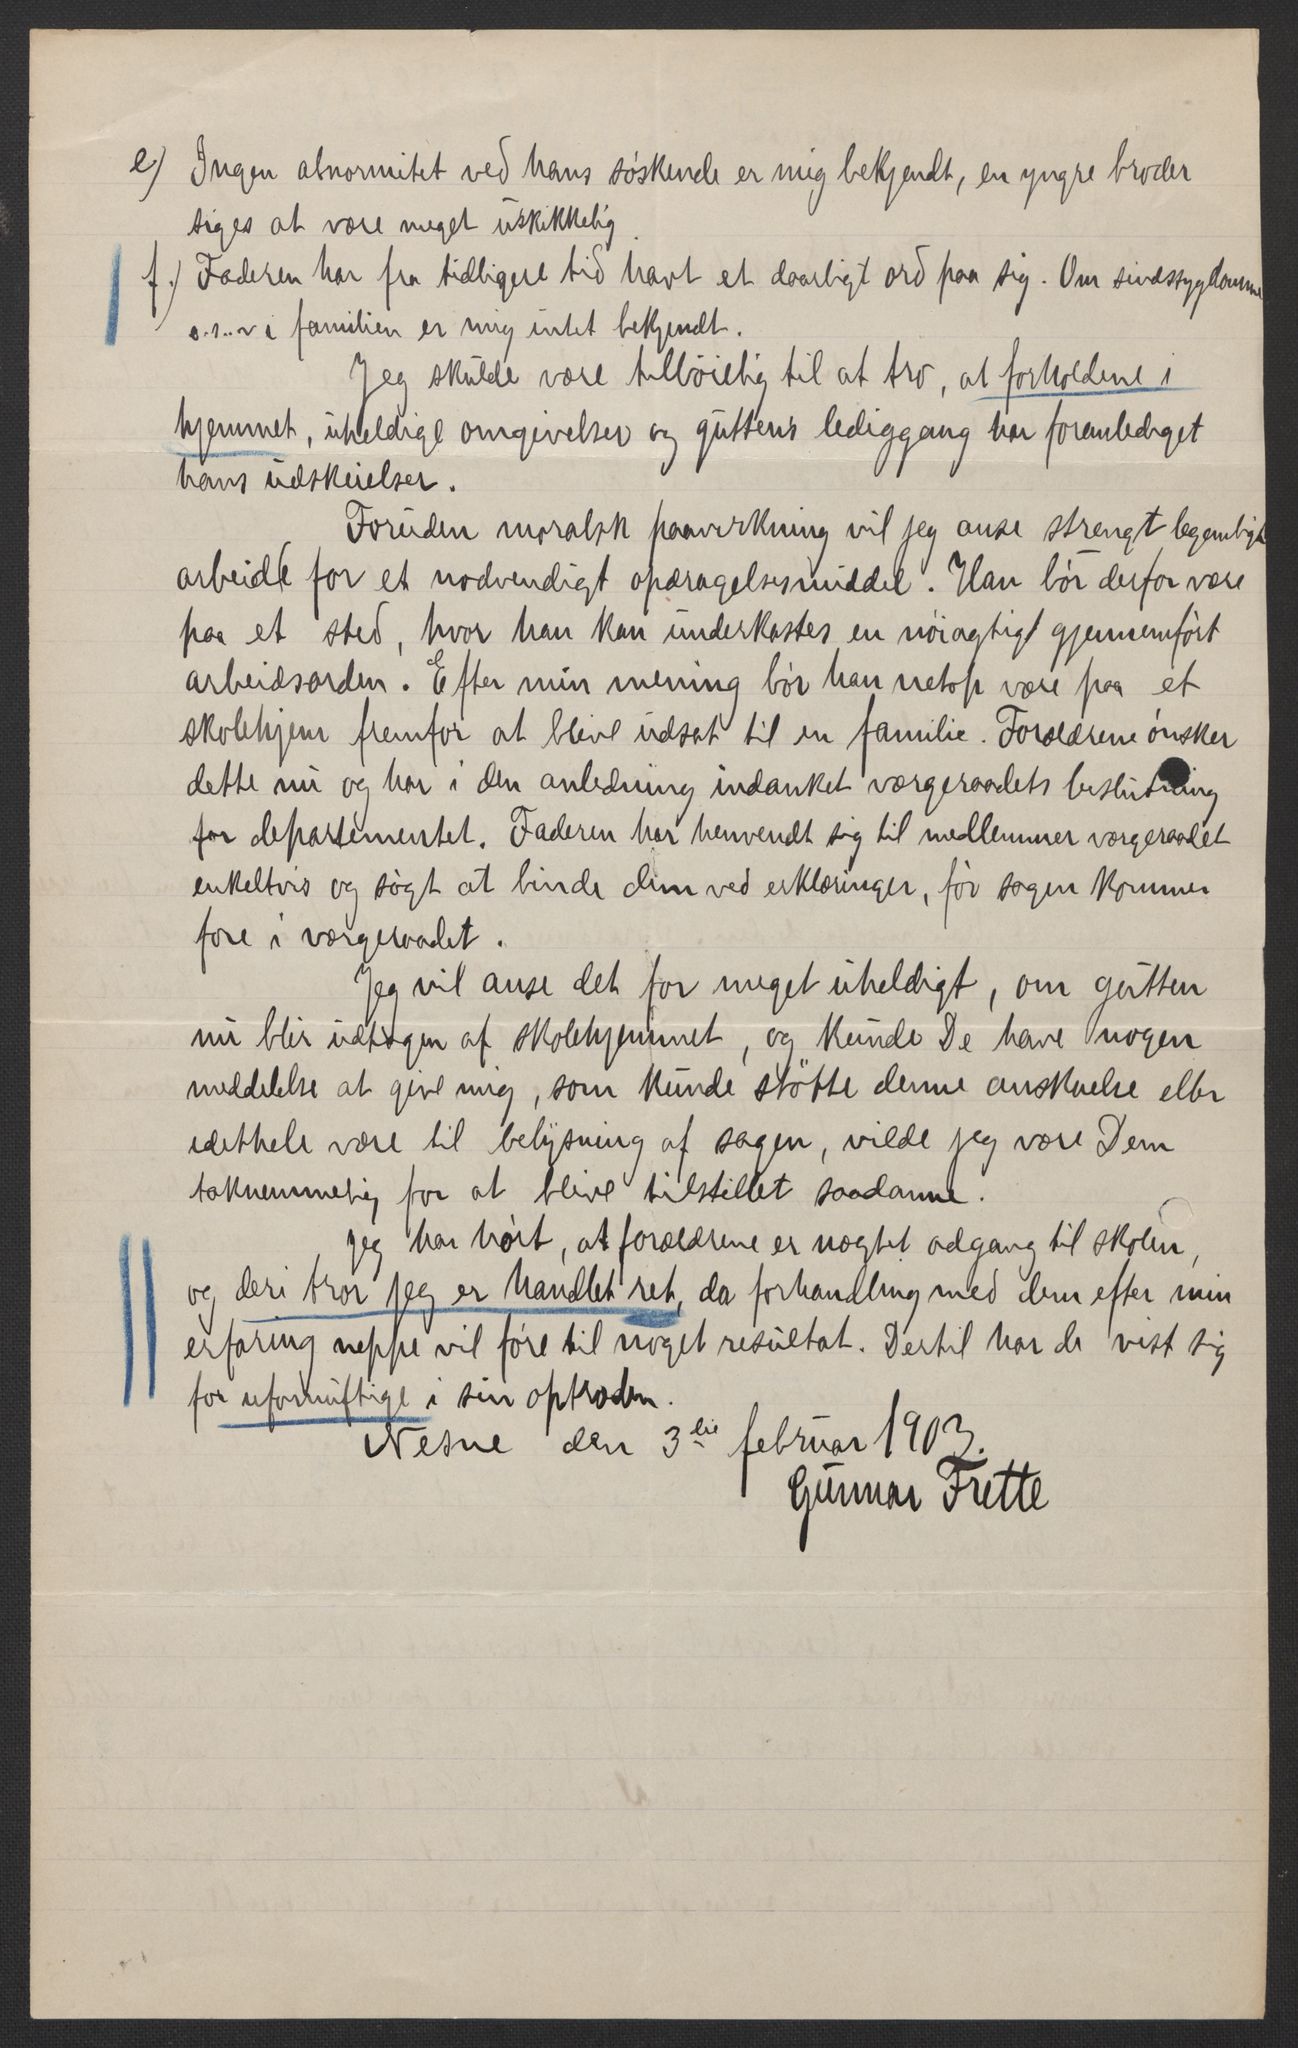 e) Ingen abnormitet ved hans søskende er mig bekjendt, en yngre broder
siges at være meget uskikkelig.
f.) Faderen har fra tidligere tid havt et daarligt ord paa sig. Om sindssygdomme
o.s.v i familien er mig intet bekjendt.
Jeg skulde være tilbøielig til at tro, at forholdene i
hjemmet, uheldige omgivelser og guttens lediggang har foranlediget
hans udskeielser.
Foruden moralsk paavirkning vil jeg anse strengt legemligt
arbeide for et nødvendigt opdragelsesmiddel. Han bør derfor være
paa et sted, hvor han kan underkastes en nøiagtigt gjennemført
arbeidsorden. Efter min mening bør han netop være paa et
skolehjem fremfor at blive udsat til en familie. Forældrene ønsker
dette nu og har i den anledning indanket værgeraadets beslutning
for departementet. Faderen har henvendt sig til medlemmer værgeraadet
enkeltvis og søgt at binde dem ved erklæringer, før sagen kommer
fore i værgeraadet.
Jeg vil anse det for meget uheldigt, om gutten
nu blir udtagen af skolehjemmet, og kunde De have nogen
meddelelse at give mig, som kunde støtte denne anskuelse eller
idethele være til belysning af sagen, vilde jeg være Dem
taknemmelig for at blive tilstillet saadanne.
Jeg har hørt, at forældrene er nægtet adgang til skolen,
og deri tror jeg er handlet ret, da forhandling med dem efter min
erfaring neppe vil føre til noget resultat. Dertil har de vist sig
for ufornuftige i sin optræden.
Nesne den 3die februar 1903.
Gunnar Frette